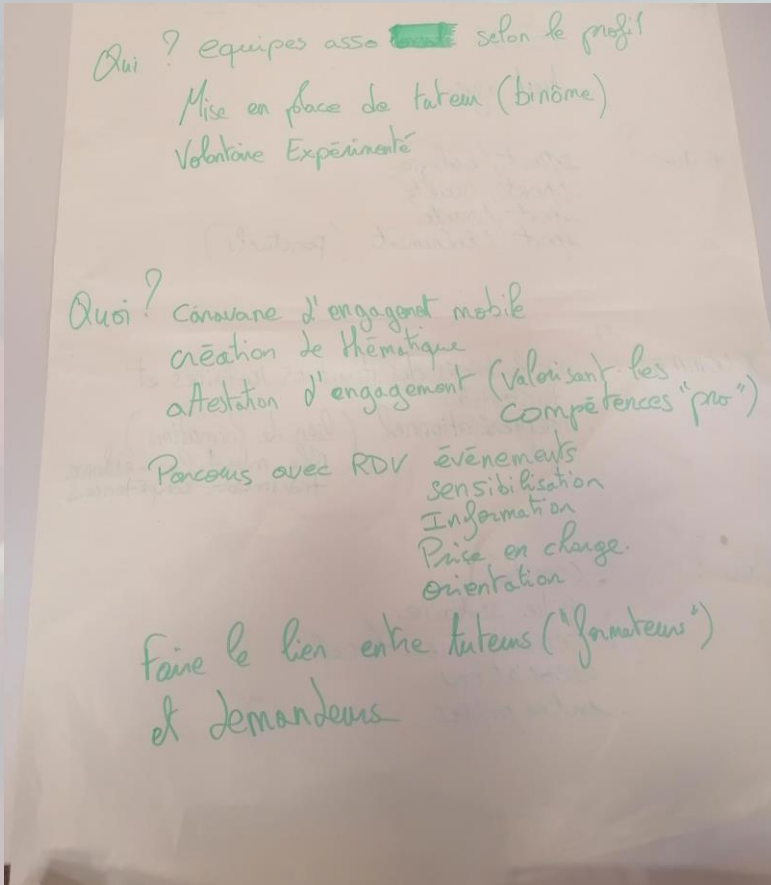 Qui ? equipes asso selon le profil
Mise en place de tuteur (binôme)
Volontaire Expérimenté
Quoi ? Caravane d'engagement mobile
création de thématique
attestation d'engagement (valorisant les
compétences "pro")
Parcours avec RDV événements
sensibilisation
Information
Prise en charge.
orientation
Faire le lien entre tuteurs ("formateurs")
et demandeurs